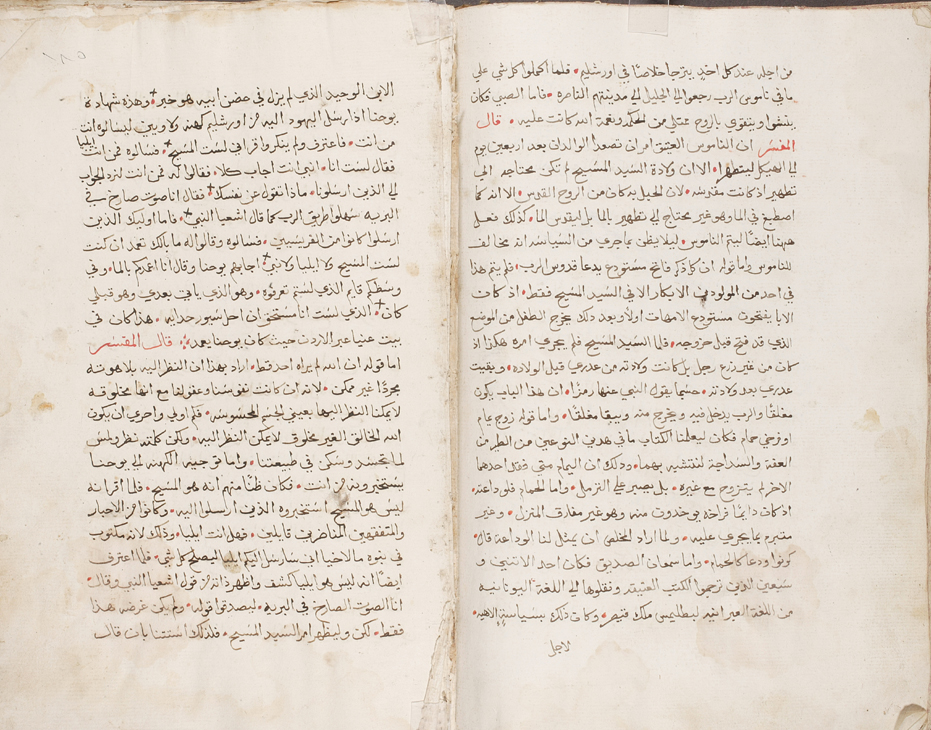 من اجله عند كل احدٍ يترجا خلاصنا في اورشليم • فلما اكملوا كل شي علي
ما في ناموس الرب رجعوا الي الجليل الي مدينتهم الناصره • فاما الصبي فكان
ينشوا ويتقوي بالروح ممتلي من الحكمه ونعمة الله كانت عليه • قال
المفسر ان الناموس العتيق امر ان تصعدا الوالدان بعد اربعين يوم
الي الهيكل ليتطهرا • الا ان ولادة السيد المسيح لم تكن محتاجه الي
تطهير اذ كانت مقدسه • لان الحبل به كان من الروح القدس • الا انه كما
اصطبغ في الما وهو غير محتاج الي تطهير بالما بل ليقدس الما • كذلك فعل
ههنا ايضًا ليتم الناموس • ليلا يظن بما جري من السياسه انه مخالف
للناموس واما قوله ان كل ذكر فاتح مستودع يدعا قدوس الرب • فلم يتم هذا
في احد من المولودين الابكار الا في السيد المسيح فقط • اذ كان
الابا يفتحون مستودع الامهات اولًا وبعد ذلك يخرج الطفل من الموضع
الذي قد فتح قبل خروجه • فاما السيد المسيح فلم يجري امره هكذا اذ
كان من غير زرع رجل بل كانت ولادته من عدري قبل الولاده • وبقيت
عدري بعد ولادته • حسبما يقول النبي عنها رمزًا • ان هذا الباب يكون
مغلقًا والرب يدخل فيه ويخرج منه ويبقا مغلقًا • واما قوله زوج يمام
او فرخي حمام فكان ليعلمنا الكتاب ما في هدين النوعين من الطير من
العفة والسداجة لنتشبه بهما • ودلك ان اليمام متي فقد احدهما
الاخر لم يتزوج مع غيره • بل يصبر علي الترمل • واما الحمام فلوداعته •
اذ كان دايمًا فراخه يوخدون منه وهو غير مفارق المنزل • وغير
متبرم بما يجري عليه • ولما اراد المخلص ان يمثل لنا الوداعة قال •
كونوا ودعا كالحمام • واما سمعان الصديق فكان احد الاتنين و
سبعين الدين ترجموا الكتب العتيقه ونقلوها الي اللغة اليونانيه
من اللغة العبرانيه لبطليموس ملك مصر • وكان ذلك بسياسةٍ الاهيه •
لاجل
١٨٥
الابن الوحيد الذي لم يزل في حضن ابيه هو خبر • وهذه شهادة
يوحنا اذ ارسل اليهود اليه من اورشليم كهنه ولاويين ليسالوه انت
من انت • فاعترف ولم ينكر واقر اني لست المسيح • فسالوه فمن انت
ايليا
فقال لست انا • النبي انت اجاب كلا • فقالوا له فمن انت لنرد الجواب
الي الذين ارسلونا • ماذا تقول عن نفسك • فقال انا صوت صارخ في
البريه سهلوا طريق الرب كما قال اشعيا النبي • فاما اوليك الذين
ارسلوا كانوا من الفريسيين • فسالوه وقالوا له ما بالك تعمد ان كنت
لست المسيح ولا ايليا ولا نبي • اجابهم يوحنا وقال انا اعمدكم بالما • وفي
وسطكم قايم الذي لستم تعرفوه • وهو الذي ياتي بعدي وهو قبلي
كان • الذي لست انا مستحق ان احل سيور حدايه • هذا كان في
بيت عنيا عبر الاردن حيث كان يوحنا يعمد • قال المفسر
اما قوله ان الله لم يراه احد قط • اراد بهذا ان النظر اليه بلاهوته
مجردًا غير ممكن • لانه ان كانت نفوسنا وعقولنا مع انها مخلوقه
لا يمكنا النظر اليها بعيني الجسم المحسوسه • فكم اولي واحري ان يكون
الله الخالق الغير مخلوق لا يمكن النظر اليه • ولكن كلمته نظر ولمس
لما تجسد وسكن في طبيعتنا • واما توجيه الكهنه الي يوحنا
يستخبرونه من انت • فكان ظنًا منهم انه هو المسيح • فلما اقر انه
ليس هو المسيح استخبروه الذين ارسلوا اليه • وكانوا من الاحبار
والمتفقهين المناظرين قايلين • فهل انت ايليا • وذلك لانه مكتوب
في نبوه ملاخيا اني سارسل اليكم ايليا ليصلح كل شي • فلما اعترف
ايضًا انه ليس هو ايليا كشف واظهر ذاته من قول اشعيا النبي وقال •
انا الصوت الصارخ في البريه • ليصدقوا قوله • ولم يكن غرضه هذا
فقط • لكن وليظهر امر السيد المسيح • فلذلك استتنا بان قال